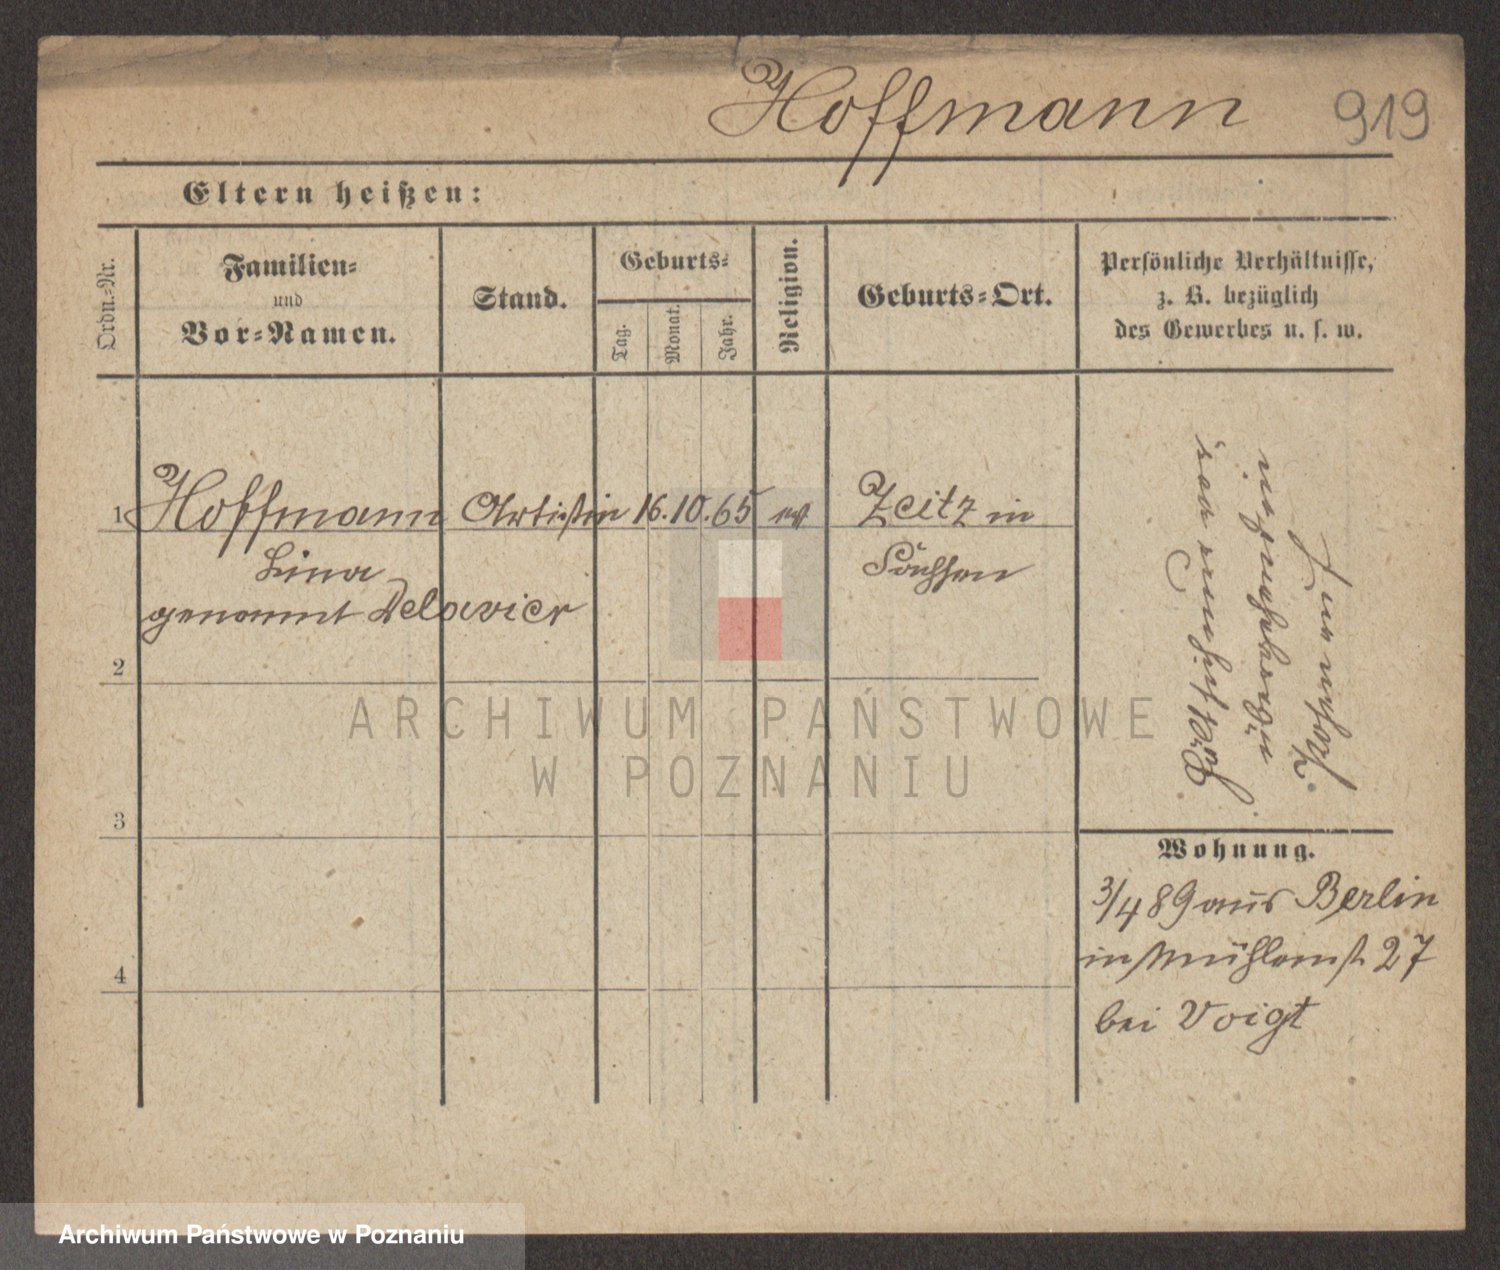 Hoffmann 919
Eltern heißen:
Ordn.-Nr.
Familien-
und
Vor-Namen.
Stand.
Geburts-
Tag.
Monat.
Jahr.
Religion.
Geburts-Ort.
Persönliche Verhältnisse,
z. B. bezüglich
des Gewerbes u. s. w.
1 Hoffmann Artistin 16.10.65 ev Zeitz in
Lina Sachsen
genannt Delavier
2
3
4
Wohnung.
3/4 89 aus Berlin
in Mühlenst 27
bei Voigt
ARCHIWUM PAŃSTWOWE
W POZNANIU
Archiwum Państwowe w Poznaniu